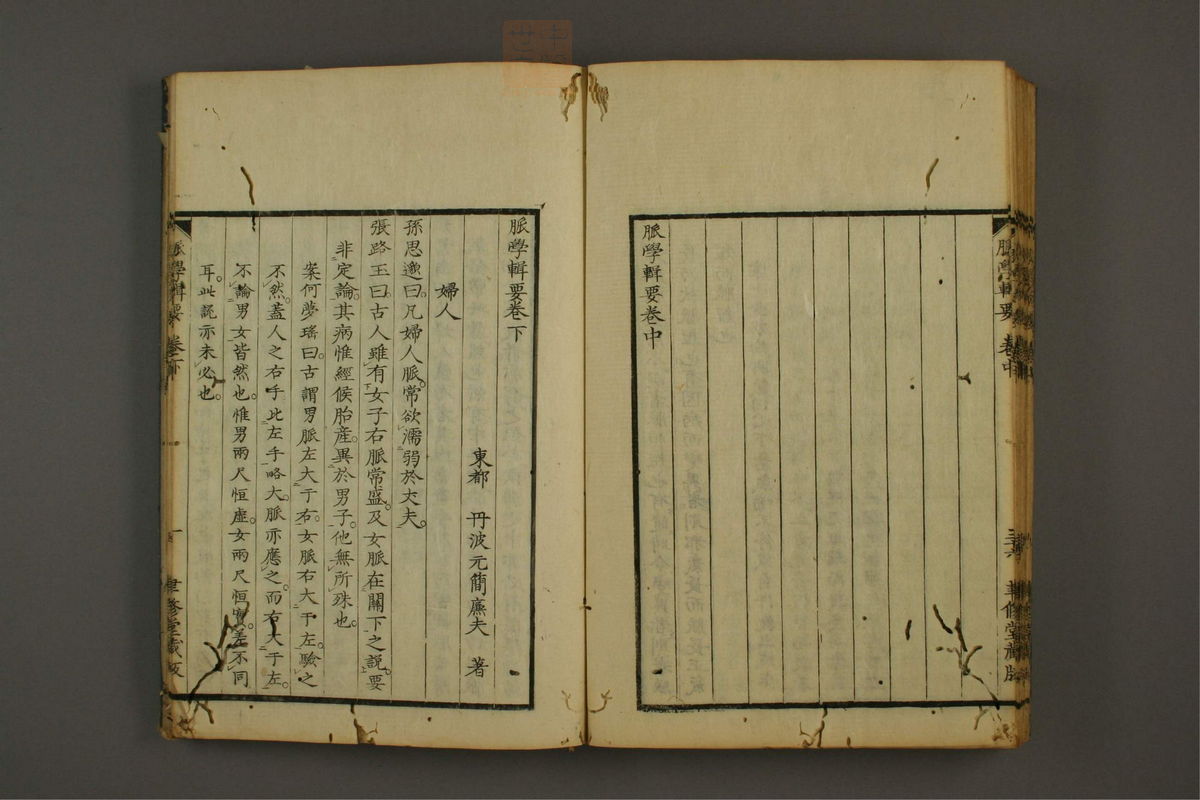 脈學輯要 卷中
三十六 聿修堂藏版
脈學輯要卷中
脈學輯要卷下
東都 丹波元簡廉夫 著
婦人
孫思邈曰。凡婦人脈。常欲濡弱於丈夫。
張路玉曰。古人雖有女子右脈常盛。及女脈在關下之說。要
非定論。其病惟經候胎產。異於男子。他無所殊也。
案何夢瑤曰。古謂男脈左大于右。女脈右大于左。驗之
不然。蓋人之右手比左手略大。脈亦應之。而右大于左。
不論男女皆然也。惟男兩尺恒虛。女兩尺恒實。差不同
耳。此說亦未必也。
脈學輯要 卷下
一 聿修堂藏版